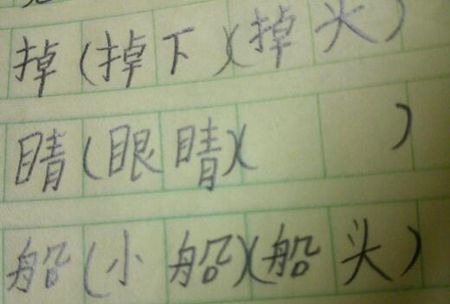 掉(掉下)(掉头)
睛(眼睛)(    )
船(小船)(船头)